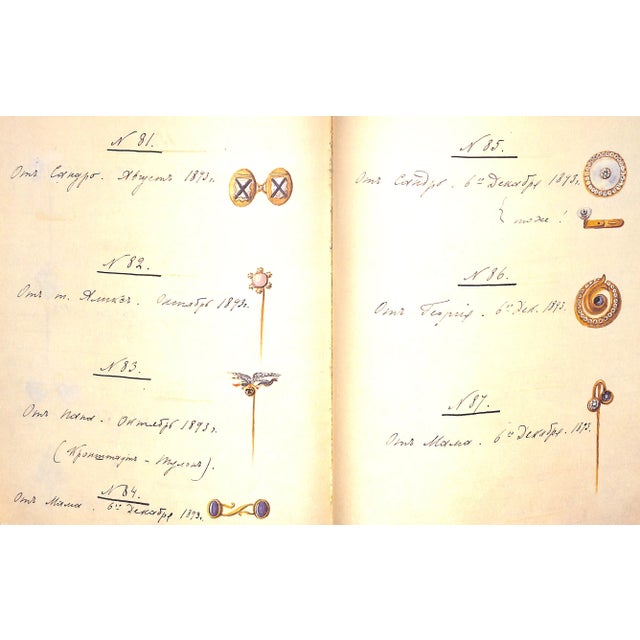 N 81.
Отъ Сандро. Августъ 1893 г.
N 82.
Отъ т. Аликсъ. Октябрь 1893 г.
N 83.
Отъ папа. октябрь 1893 г.
(Кронштадтъ - Тулонъ).
N 84.
Отъ Мама. 6го Декабря 1893 г.
N 85.
Отъ Сандро. 6го Декабря 1893 г.
тоже!
N 86.
Отъ Георгія. 6го Дек. 1893.
N 87.
Отъ Мама. 6го Декабря. 1893.